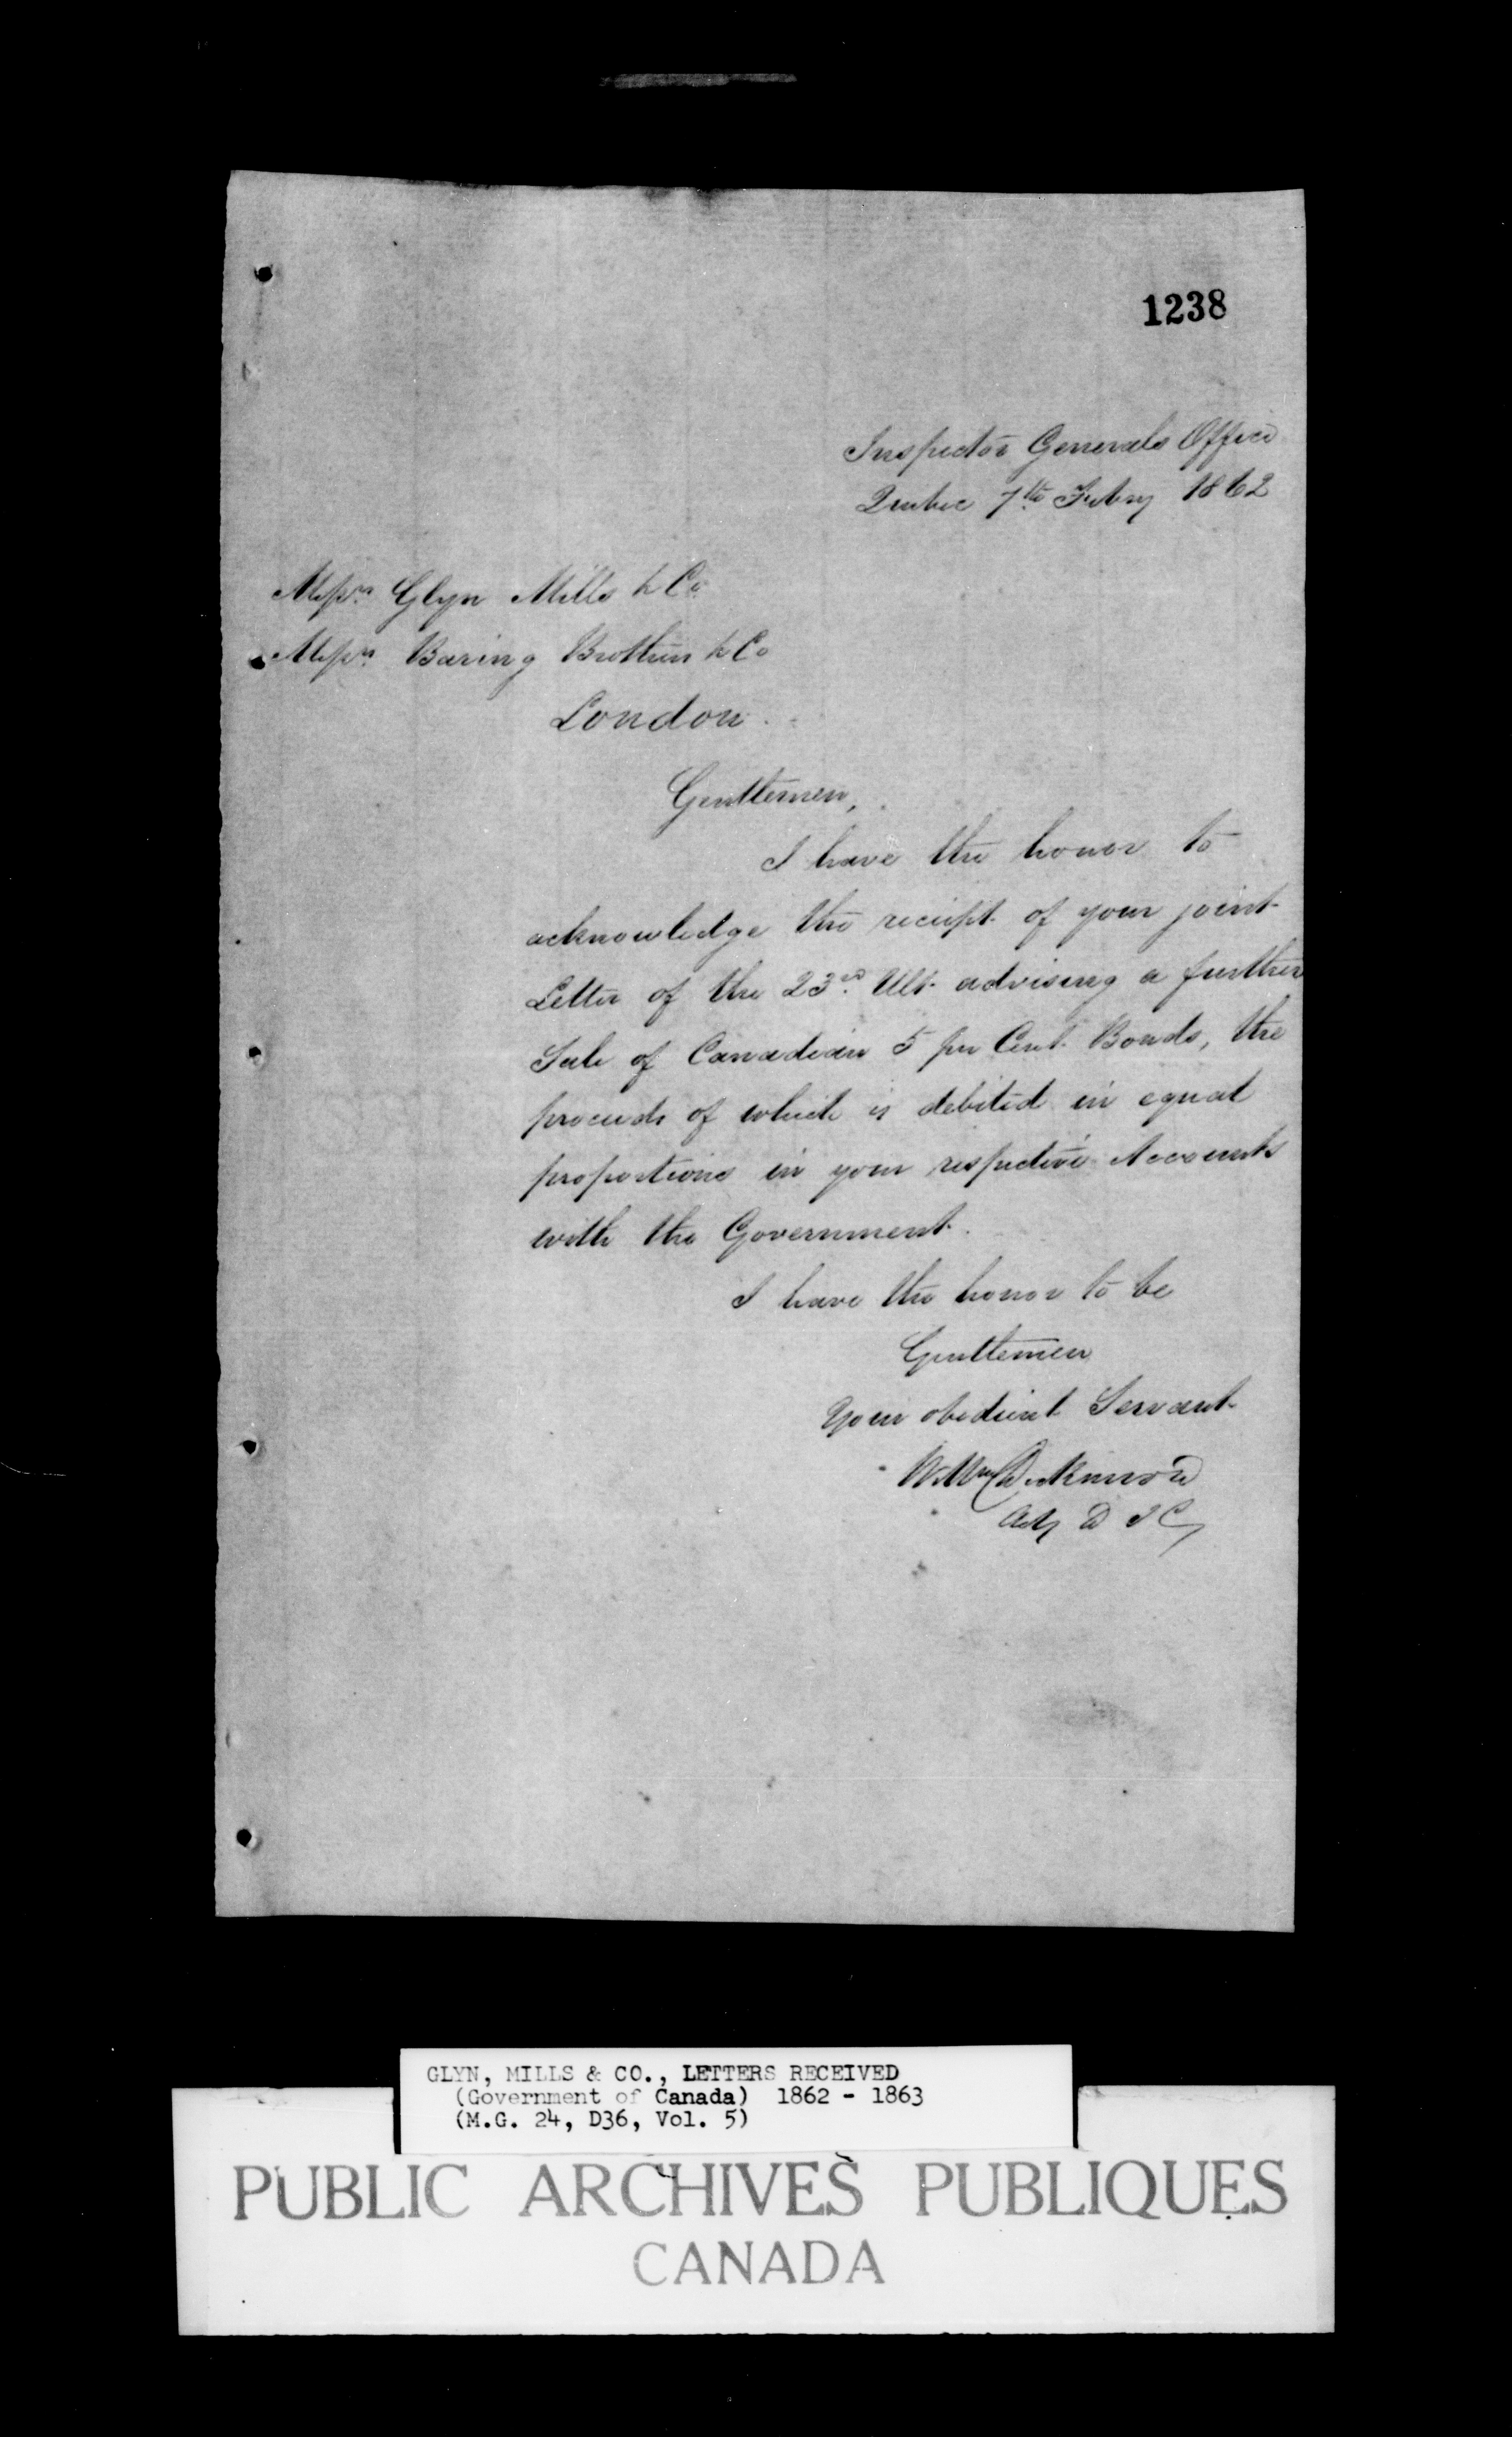 1238
Inspector Generals Office
Quebec 7th Feby 1862
Messrs Glyn Mills & Co
Messrs Baring Brothers & Co
London.
Gentlemen,
I have the honor to
acknowledge the receipt of your joint
Letter of the 23rd Ult. advising a further
Sale of Canadian 5 per Cent. Bonds, the
proceeds of which is debited in equal
proportions in your respective Accounts
with the Government.
I have the honor to be
Gentlemen
Your obedient Servant
Wm Dickinson
Actg D I G
GLYN, MILLS & CO., LETTERS RECEIVED
(Government of Canada) 1862 - 1863
(M.G. 24, D36, Vol. 5)
PUBLIC ARCHIVES PUBLIQUES
CANADA